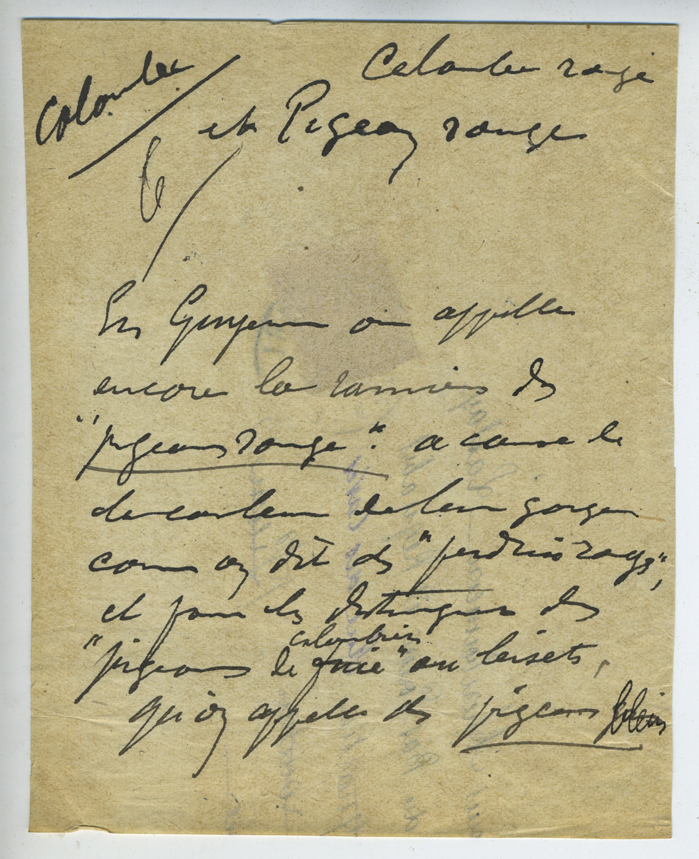 Colombe
Colombe rouge
et Pigeon rouge
6
En on appelle
encore les ramiers des
"pigeons rouge". a cause de
la couleur de leur gorge
comme on dit des "perdrix rouges",
et pour les distinguer des
colombiers
"pigeons de " ou bisets,
qu'on appelle des pigeons bleus